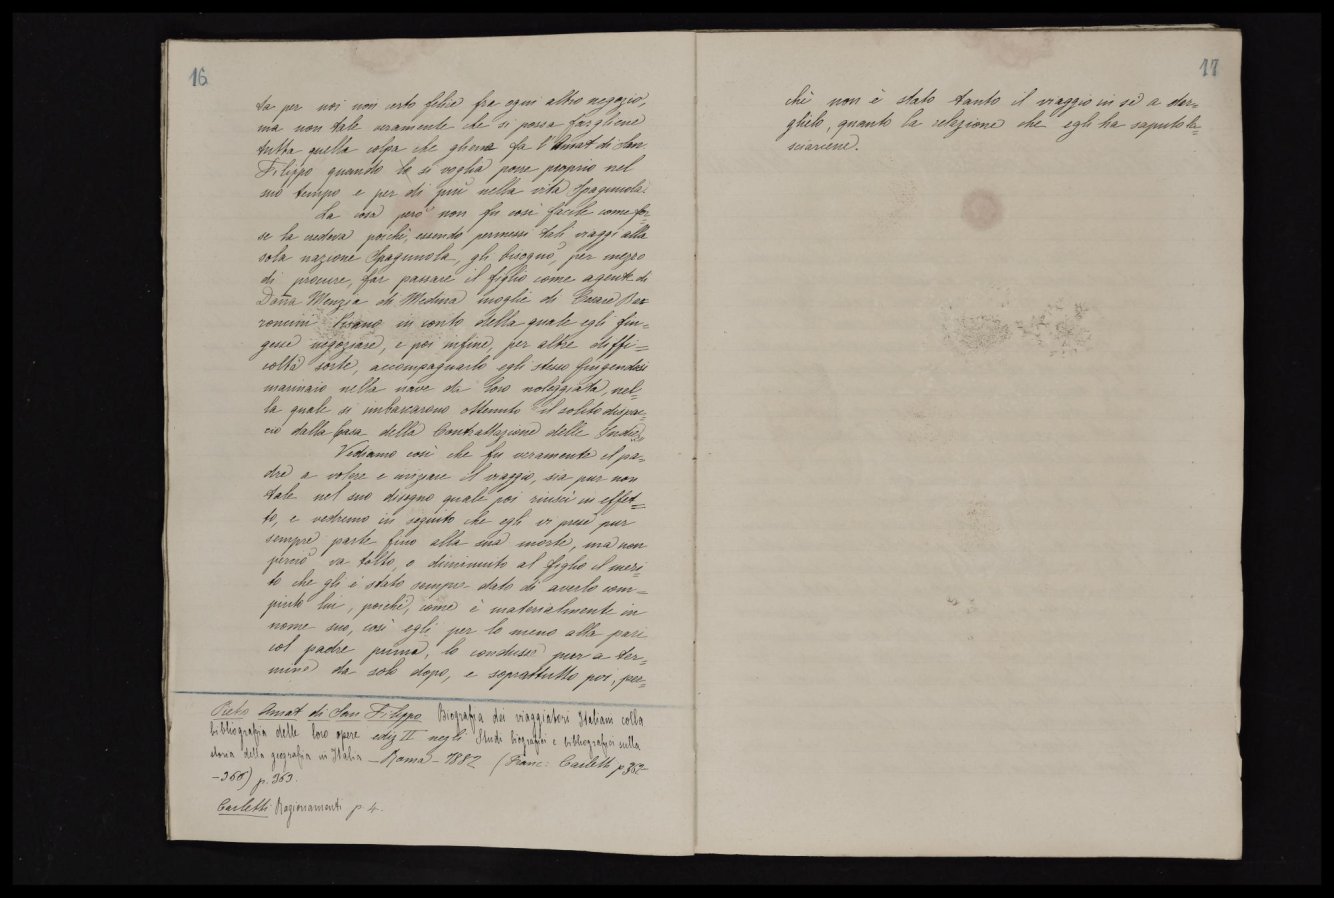 16
ta per noi non certo felice fra ogni altro negozio,
ma non tale veramente che si possa fargliene
tutta quella colpa che gliene fa l'Amat di San
Filippo quando lo si voglia porre proprio nel
suo tempo e per di più nella vita Spagnuola.
La cosa però non fu così facile come for-
se la credeva poichè, essendo permessi tali viaggi alla
sola nazione Spagnuola, gli bisognò, per mezzo
di procure, far passare il figlio come agente di
Doña Menzia di Medina moglie di Cesare Bar
roncini Pisano in conto della quale egli fin-
gesse negoziare, e poi infine, per altre diffi=
coltà sorte, accompagnarlo egli stesso fingendosi
marinaio nella nave da loro noleggiata, nel-
la quale si imbarcarono ottenuto il solito dispac-
cio dalla Casa della Contrattazione delle Indie.
Vediamo così che fu veramente il pa-
dre a volere e iniziare il viaggio, sia pur non
tale nel suo disegno quale poi riuscì in effet=
to, e vedremo in seguito che egli vi prese pur
sempre parte fino alla sua morte, ma non
perciò va tolto, o diminuito al figlio il meri-
to che gli è stato sempre dato di averlo com=
piuto lui, poichè, come è materialmente in
nome suo, così egli per lo meno alla pari
col padre prima, lo condusse pur a ter-
mine da solo dopo, e soprattutto poi, per-
Pietro Amat di San Filippo Biografia dei viaggiatori Italiani colla
bibliografia delle loro opere ediz II negli Studi biografici e bibliografici sulla
storia della geografia in Italia - Roma - 1882 (Franc: Carletti p. 362
-366) p. 363.
Carletti Ragionamenti p 4.
17
chè non è stato tanto il viaggio in sè a dar=
glielo, quanto la relazione che egli ha saputo la=
sciarcene.